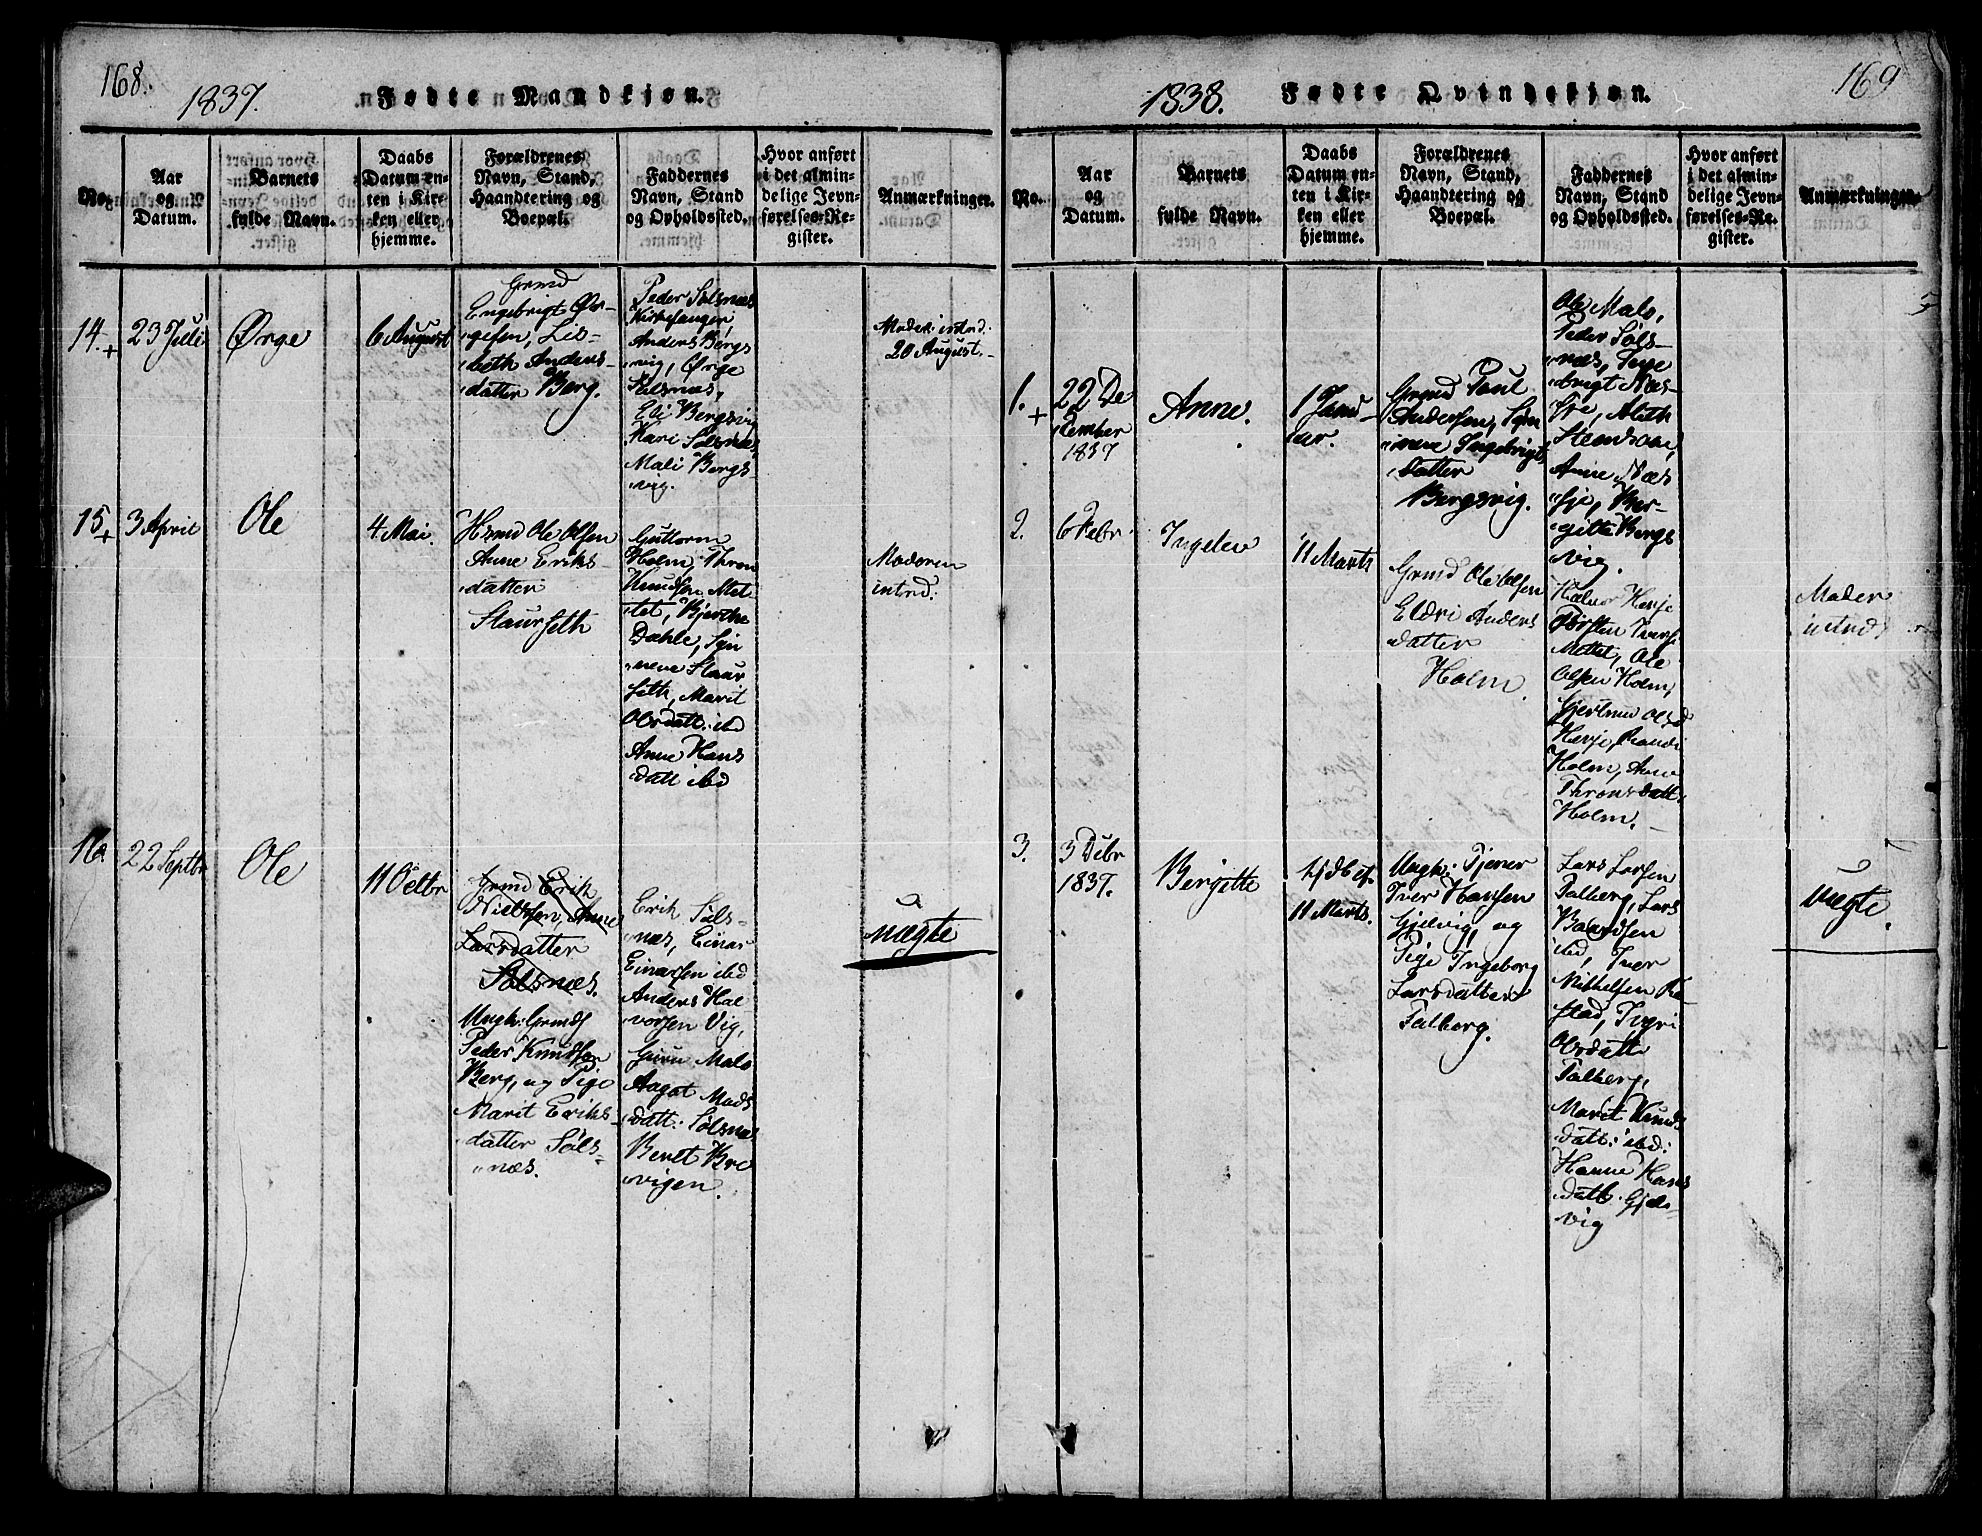 168.
1837.
Fødte Mandkjøn.
No.
Aar
og
Datum.
Barnets
fulde Navn.
Daabs
Datum en-
ten i Kir-
ken eller
hjemme.
Forældrenes
Navn, Stand,
Haandtering og
Boepæl.
Faddernes
Navn, Stand
og Opholdssted.
Hvor anført
i det almin-
delige Jevn-
førelses-Re-
gister.
Anmærkninger.
14.
+
23 Juli
Ørge
6 August
Grmd
Engebrigt Ør-
gesen, Lis-
beth Anders
datter Berg.
Peder Sølsnæs
Kirkesanger
Anders Bergs
vig, Ørge
Sølsnæs,
Eli Bergsvig
Kari Sølsnæs
Mali Bergs
vig.
Moder: introd:
20 August.
15
+
3 April
Ole
4 Mai.
Hsmd Ole Olsen
Anne Eriks-
datter
Staurseth
Guttorm
Holm, Thron
Knudsen Met
tet, Bjerthe
Dahle, Syn
neve Staur
seth, Marit
Olsdatt: ibd
Anne Hans
datt ibd
Moderen
introd:
16
22 Septbr
Ole
11 Octbr
Grmd Erik
Nielssen, Anne
Larsdatter
Sølsnæs.
Ungk: Grmds
Peder Knudsen
Berg, og Pige
Marit Eriks-
datter Søls-
næs.
Erik Søls-
næs, Einar
Einarsen ibd
Anders Hal
vorsen Vig,
Guru Malo
Aagot Mads
datt: Sølsnæs
Beret Bre
vigen.
uægte
169
1838.
Fødte Qvindekjøn.
No.
Aar
og
Datum.
Barnets
fulde Navn.
Daabs
Datum en-
ten i Kir-
ken eller
hjemme.
Forældrenes
Navn, Stand,
Haandtering og
Boepæl.
Faddernes
Navn, Stand
og Opholdssted.
Hvor anført
i det almin-
delige Jevn-
førelses-Re-
gister.
Anmærkninger.
1.
+
22 De
cember
1837
Anne.
1 Janu-
ar.
Grmd Poul
Andersen, Syn
neve Ingebrigt
datter
Bergsvig.
Ole Malo,
Peder Søls-
næs, Inge
brigt Næs-
sje, Aleth
Anne Næs
sje, Ber-
gitte Bergs
vig.
2.
6 Febr.
11 Marts
Grmd Ole Olsen
Eldri Anders
datter
Holm.
Halvor Herje
Torsten Ivers:
Mettet, Ole
Olsen Holm,
Herje, Randi
Holm, Anne
Thronsdatt:
Holm.
Moder
introd:
3.
3 Debr
1837.
Bergitte
11 Marts.
Ungk: Tjener
Iver Hansen
Gjelvig, og
Pige Ingeborg
Larsdatter
Talberg.
Lars Larsen
Talberg, Lars
Baardsen
ibd, Iver
Mikkelsen Re-
stad,
Olsdatt:
Talberg,
Marit Knuds
datt: ibd:
Hanne Hans
datt. Gjel-
vig
uægte.